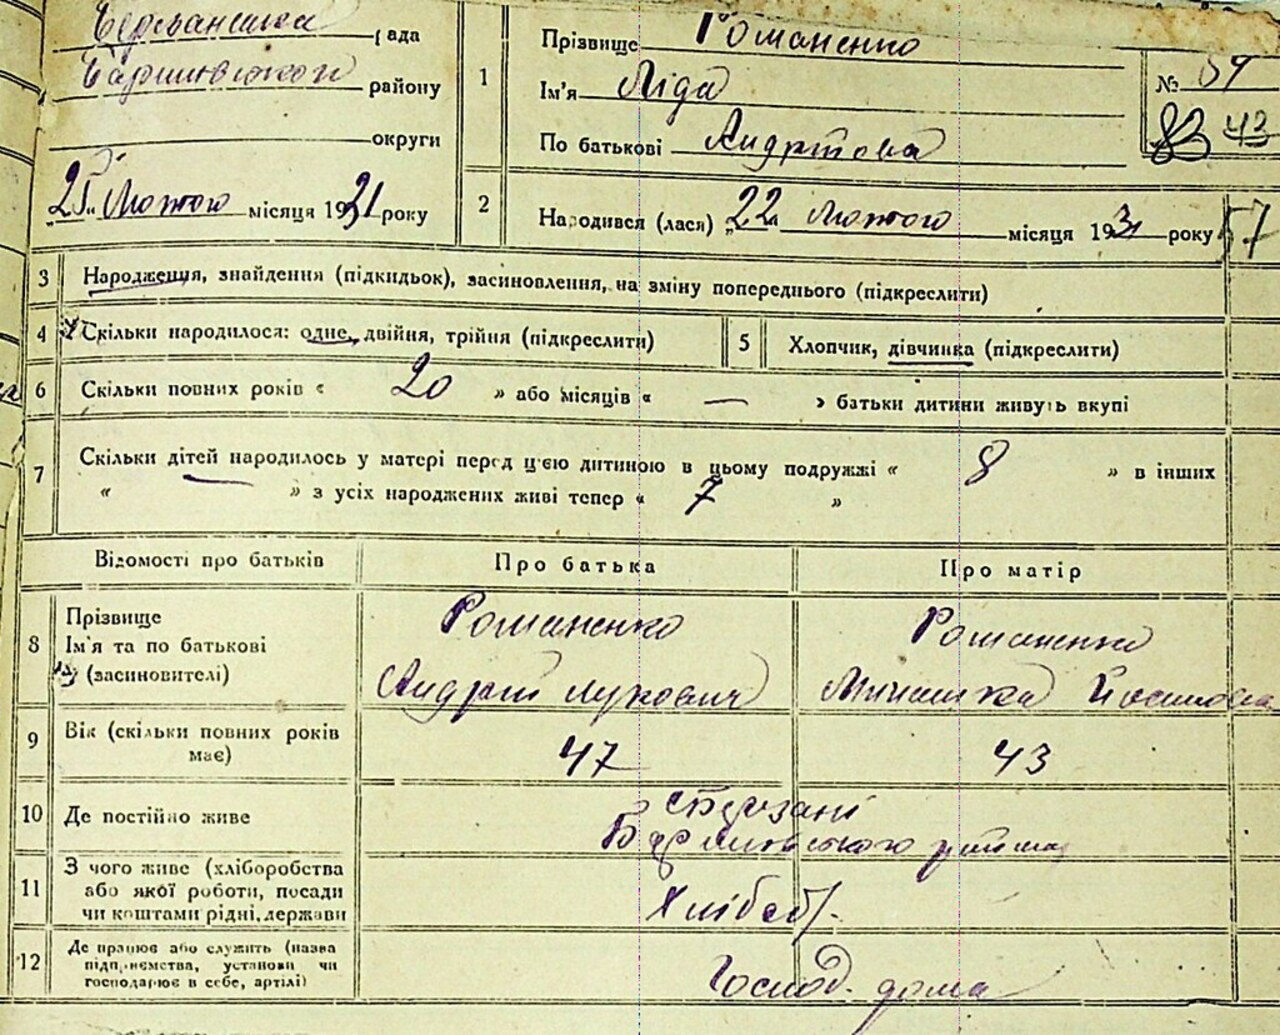 рада
району
округи
25 Лютого місяця 1931 року
1
Прізвище Романенко
Ім'я Ліда
По батькові Андріївна
№ 59
83 43
2
Народився (лася) 22 Лютого місяця 1931 року
57
3 Народження, знайдення (підкидьок), засиновлення, на зміну попереднього (підкреслити)
4 Скільки народилося: одне, двійня, трійня (підкреслити)
5 Хлопчик, дівчинка (підкреслити)
6 Скільки повних років « 20 » або місяців « — » батьки дитини живуть вкупі
7 Скільки дітей народилось у матері перед цією дитиною в цьому подружжі « 8 » в інших
« — » з усіх народжених живі тепер « 7 »
Відомості про батьків
Про батька
Про матір
8
Прізвище
Ім'я та по батькові
(засиновителі)
Романенко
Андрій Лукович
Романенко
9
Вік (скільки повних років
має)
47
43
10 Де постійно живе
району
11
З чого живе (хліборобства
або якої роботи, посади
чи коштами рідні, держави
Хлібоб.
12
Де працює або служить (назва
підприємства, установи чи
господарює в себе, артілі)
Господ. дома